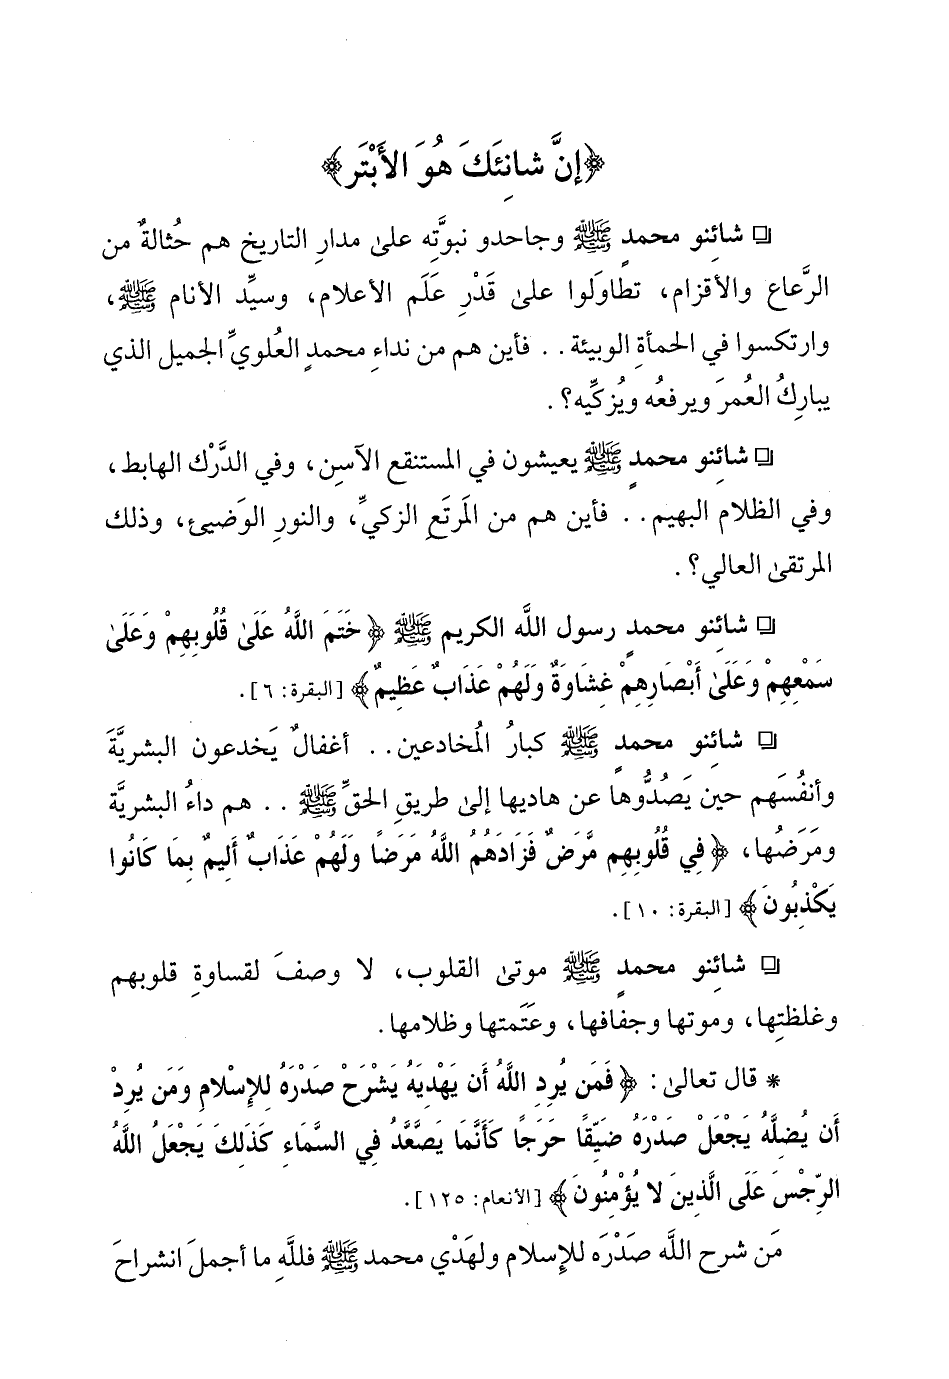 ﴿إنَّ شانِئَكَ هُوَ الأَبْتَر﴾
❏ شانِئو محمدٍ ﷺ وجاحدو نبوَّتِه علىٰ مدارِ التاريخ هم حُثالةٌ من
الرَّعاع والأقزام، تطاوَلوا علىٰ قَدْرِ عَلَم الأعلام، وسيِّد الأنام ﷺ،
وارتكسوا في الحمأةِ الوبيئة.. فأين هم من نداءِ محمدٍ العُلويِّ الجميل الذي
يبارِكُ العُمرَ ويرفعُه ويُزكِّيه؟.
❏ شانِئو محمدٍ ﷺ يعيشون في المستنقع الآسِن، وفي الدَّرْك الهابط،
وفي الظلام البهيم.. فأين هم من المَرتَعِ الزكيِّ، والنورِ الوَضيئ، وذلك
المرتقىٰ العالي؟.
❏ شانِئو محمدٍ رسول اللَّه الكريم ﷺ ﴿خَتَمَ اللَّهُ عَلَىٰ قُلُوبِهِمْ وَعَلَىٰ
سَمْعِهِمْ وَعَلَىٰ أَبْصَارِهِمْ غِشَاوَةٌ وَلَهُمْ عَذَابٌ عَظِيمٌ﴾ [البقرة: ٦].
❏ شانِئو محمدٍ ﷺ كبارُ المُخادعين.. أغفالٌ يَخدعون البشريَّةَ
وأنفُسَهم حين يَصُدُّوها عن هاديها إلىٰ طريقِ الحقِّ ﷺ .. هم داءُ البشريَّة
ومَرَضُها، ﴿فِي قُلُوبِهِم مَّرَضٌ فَزَادَهُمُ اللَّهُ مَرَضًا وَلَهُمْ عَذَابٌ أَلِيمٌ بِمَا كَانُوا
يَكْذِبُونَ﴾ [البقرة: ١٠].
❏ شانِئو محمدٍ ﷺ موتىٰ القلوب، لا وصفَ لقساوةِ قلوبهم
وغلظتِها، وموتها وجفافها، وعَتَمتها وظلامها.
* قال تعالىٰ: ﴿فَمَن يُرِدِ اللَّهُ أَن يَهْدِيَهُ يَشْرَحْ صَدْرَهُ لِلإِسْلامِ وَمَن يُرِدْ
أَن يُضِلَّهُ يَجْعَلْ صَدْرَهُ ضَيِّقًا حَرَجًا كَأَنَّمَا يَصَّعَّدُ فِي السَّمَاءِ كَذَلِكَ يَجْعَلُ اللَّهُ
الرِّجْسَ عَلَى الَّذِينَ لا يُؤْمِنُونَ﴾ [الأنعام: ١٢٥].
مَن شرح اللَّه صَدْرَه للإِسلام ولهَدْي محمد ﷺ فللَّهِ ما أجملَ انشراحَ